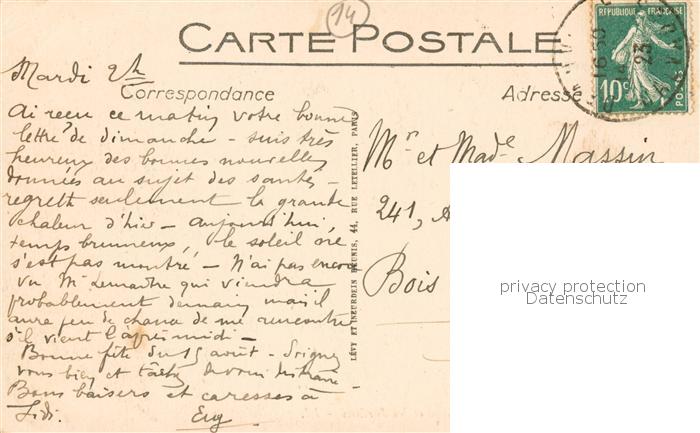 14
CARTE POSTALE
REPUBLIQUE FRANÇAISE
10c
POSTES
16 50
23
Mardi 2h
Correspondance
Adresse
Ai reçu ce matin votre bonne
lettre de dimanche - suis très
heureux des bonnes nouvelles
données au sujet des santés -
regrette seulement la grande
chaleur d'hier - aujourd'hui,
temps brumeux, le soleil ne
s'est pas montré - N'ai pas encore
vu Mr Lemaitre qui viendra
probablement demain mais il
aura peu de chance de me rencontrer
s'il vient l'après midi -
Bonne fête du 15 août - Soignez
vous bien et tâchez de vous distraire -
Bons baisers et caresses à
Fidi.
Eug
LÉVY ET NEURDEIN RÉUNIS, 44, RUE LETELLIER, PARIS
Mr et Made Massin
241, A
Bois
privacy protection
Datenschutz